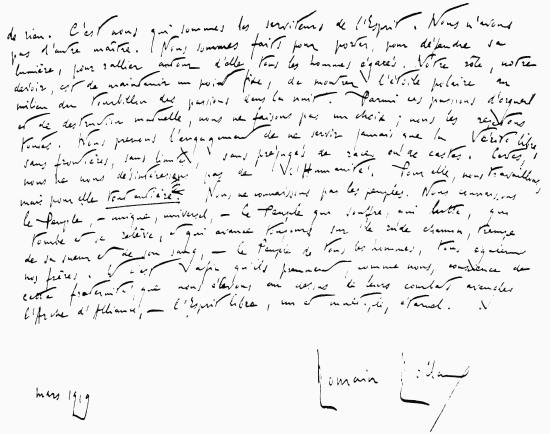 de rien. C'est nous qui sommes les serviteurs de l'Esprit. Nous n'avons
pas d'autre maître. Nous sommes faits pour porter, pour défendre sa
lumière, pour rallier autour d'elle tous les hommes égarés. Notre rôle, notre
devoir, est de maintenir un point fixe, de montrer l'étoile polaire au
milieu du tourbillon des passions dans la nuit. Parmi ces passions d'orgueil
et de destruction mutuelle, nous ne faisons pas un choix; nous les rejetons
toutes. Nous prenons l'engagement de ne servir jamais que la Vérité libre,
sans frontières, sans limites, sans préjugés de races ou de castes. Certes,
nous ne nous désintéressons pas de l'Humanité! Pour elle, nous travaillons,
mais pour elle tout entière. Nous ne connaissons pas les peuples. Nous connaissons
le Peuple, – unique, universel, – le Peuple qui souffre, qui lutte, qui
tombe et se relève, et qui avance toujours sur le rude chemin, trempé
de sa sueur et de son sang, – le Peuple de tous les hommes, tous également
nos frères. Et c'est afin qu'ils prennent, comme nous, conscience de
cette fraternité, que nous élevons au-dessus de leurs combats aveugles
l'Arche d'Alliance, – l'Esprit libre, un et multiple, éternel.
Romain Rolland
mars 1919